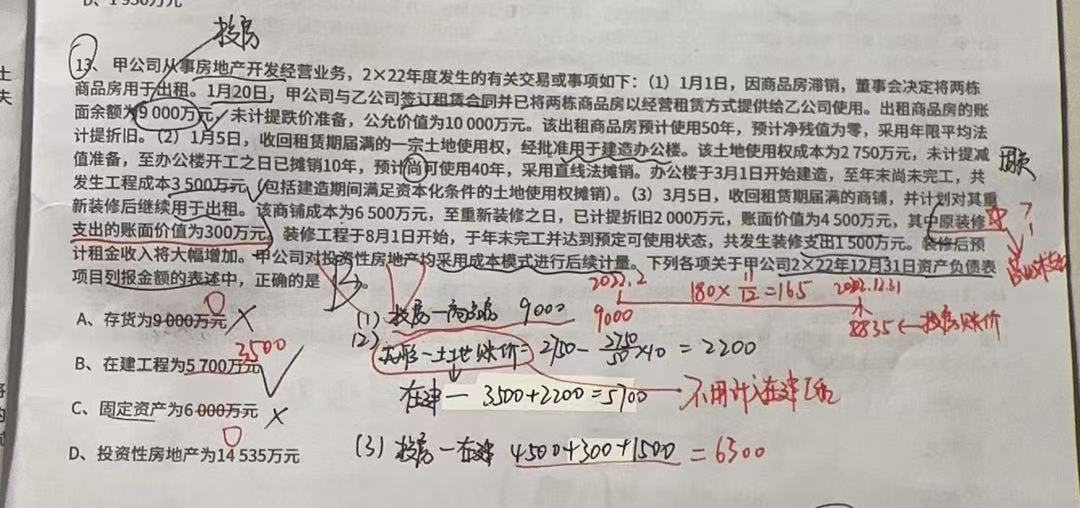 D、1 950万元
投房
13、甲公司从事房地产开发经营业务，2×22年度发生的有关交易或事项如下：（1）1月1日，因商品房滞销，董事会决定将两栋
商品房用于出租。1月20日，甲公司与乙公司签订租赁合同并已将两栋商品房以经营租赁方式提供给乙公司使用。出租商品房的账
面余额为9 000万元，未计提跌价准备，公允价值为10 000万元。该出租商品房预计使用50年，预计净残值为零，采用年限平均法
计提折旧。（2）1月5日，收回租赁期届满的一宗土地使用权，经批准用于建造办公楼。该土地使用权成本为2 750万元，未计提减
值准备，至办公楼开工之日已摊销10年，预计尚可使用40年，采用直线法摊销。办公楼于3月1日开始建造，至年末尚未完工，共
发生工程成本3 500万元（包括建造期间满足资本化条件的土地使用权摊销）。（3）3月5日，收回租赁期届满的商铺，并计划对其重
新装修后继续用于出租。该商铺成本为6 500万元，至重新装修之日，已计提折旧2 000万元，账面价值为4 500万元，其中原装修
支出的账面价值为300万元。装修工程于8月1日开始，于年末未完工并达到预定可使用状态，共发生装修支出1 500万元。装修后预
计租金收入将大幅增加。甲公司对投资性房地产均采用成本模式进行后续计量。下列各项关于甲公司2×22年12月31日资产负债表
项目列报金额的表述中，正确的是 B 。
2022.2
180×11/12=165
2022.12.31
9000
8835←投房账价
0
A、存货为9 000万元 ×
（1）投房一商品房 9000
（2）
无形一土地账价=2750-2750/50×10=2200
3500
B、在建工程为5 700万元 √
在建一 3500+2200=5700
不用计入在建工程
C、固定资产为6 000万元 ×
0
D、投资性房地产为14 535万元
（3）投房一在建 4500+300+1500=6300